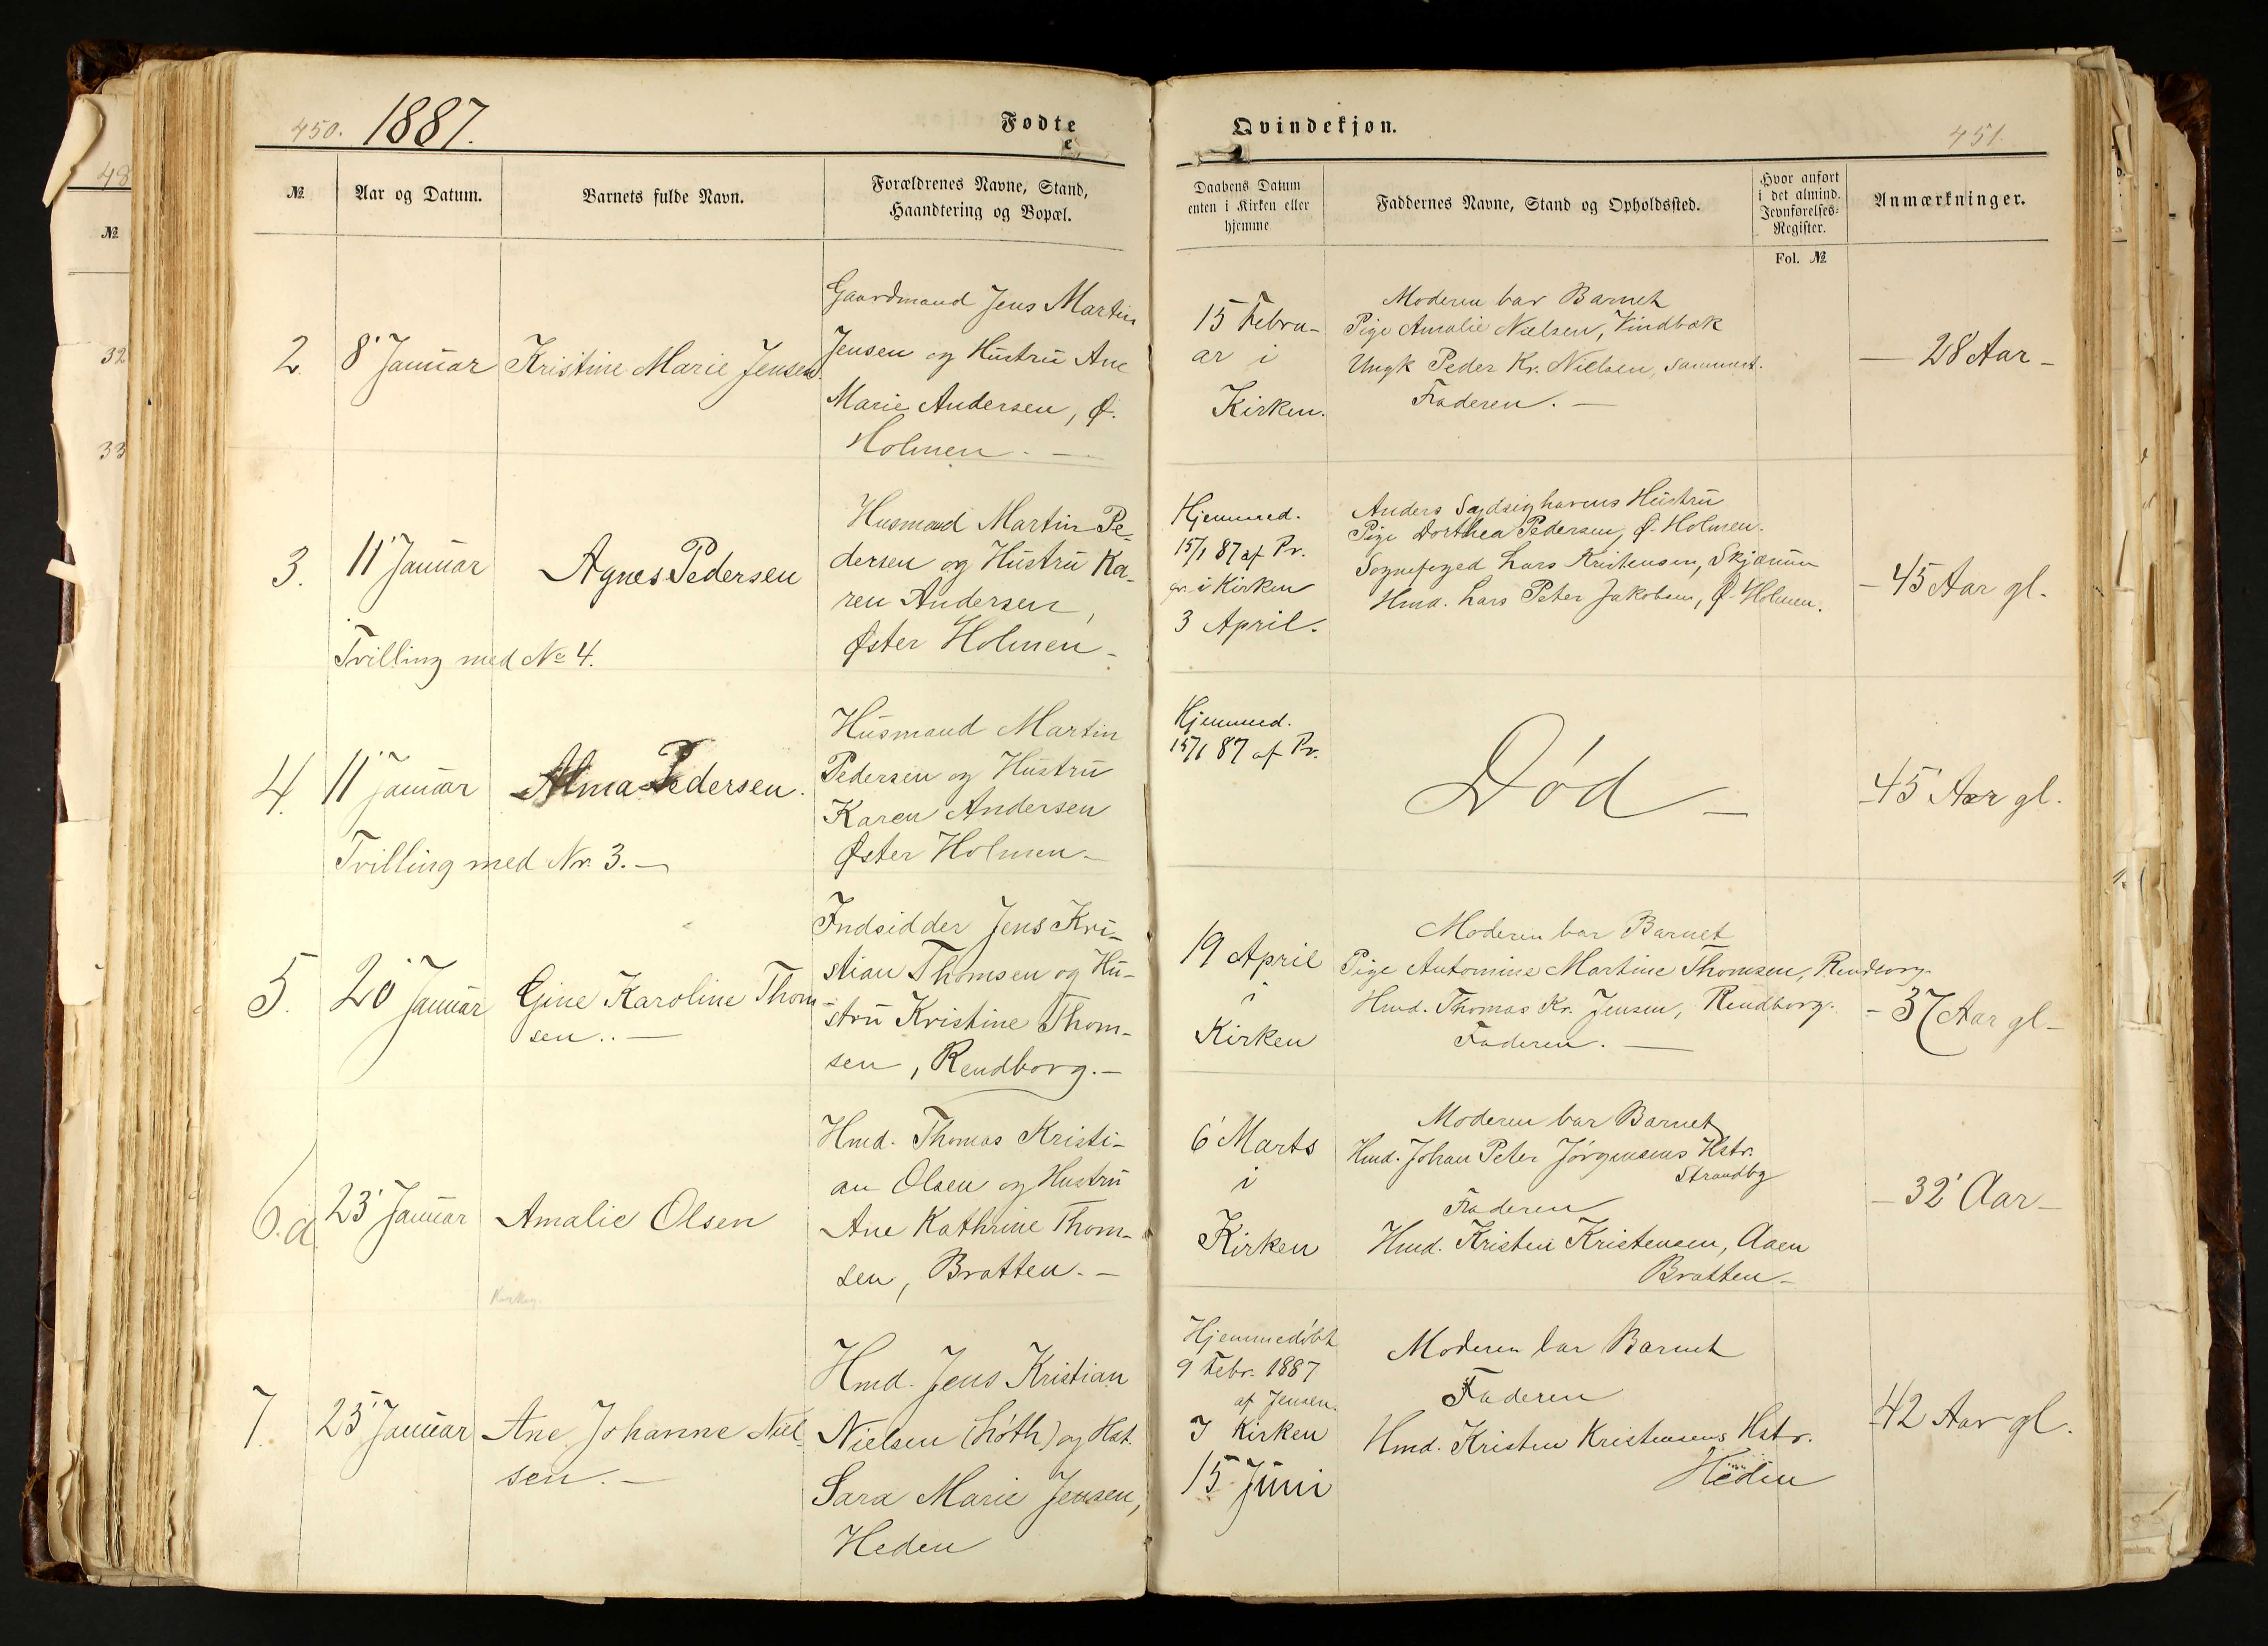 450. 1887.
Fødte
Qvindekjøn.
451.
№
Aar og Datum.
Barnets fulde Navn.
Forældrenes Navne, Stand,
Haandtering og Bopæl.
Daabens Datum
enten i Kirken eller
hjemme
Faddernes Navne, Stand og Opholdssted.
Hvor anført
i det almind.
Jevnførelses-
Register.
Fol. №
Anmærkninger.
2.
8' Januar
Kristine Marie Jensen
Gaardmand Jens Martin
Jensen og Hustru Ane
Marie Andersen, Ø.
Holmen. —
15 Febru-
ar i
Kirken.
Moderen bar Barnet
Pige Amalie Nielsen, Vindbæk
Ungk Peder Kr. Nielsen, sammest.
Faderen. —
— 28 Aar —
3.
11' Januar
Agnes Pedersen
Tvilling med No 4.
Husmand Martin Pe-
dersen og Hustru Ka-
ren Andersen,
Øster Holmen -
Hjemmed.
15/1 87 af Pr.
i Kirken
3 April.
Anders Hustru
Pige Dorthea Pedersen, Ø. Holmen.
Sognefoged Lars Kristensen, Skjærum
Hmd. Lars Peter Jakobsen, Ø. Holmen.
- 45 Aar gl.
4.
11' Januar
Alma Pedersen.
Tvilling med Nr. 3. —
Husmand Martin
Pedersen og Hustru
Karen Andersen
Øster Holmen -
Hjemmed.
15/1 87 af Pr.
Død —
- 45 Aar gl.
5.
20' Januar
Gine Karoline Thom-
sen.. —
Indsidder Jens Kri-
stian Thomsen og Hu-
stru Kristine Thom-
sen, Rendborg. -
19 April
i
Kirken
Moderen bar Barnet
Pige Antomine Martine Thomsen, Rendborg.
Hmd. Thomas Kr. Jensen, Rendborg.
Faderen. —
- 37 Aar gl -
6.a
23' Januar
Amalie Olsen
Hmd. Thomas Kristi-
an Olsen og Hustru
Ane Kathrine Thom-
sen, Bratten. -
6' Marts
i
Kirken
Moderen bar Barnet
Hmd. Johan Peter Jörgensens Hstr.
Strandby
Faderen
Hmd. Kristen Kristensen, Aaen
Bratten -
- 32' Aar -
7.
25' Januar
Ane Johanne Niel-
sen. —
Hmd. Jens Kristian
Nielsen (Lóth) og Hst.
Sara Marie Jensen,
Heden
Hjemmedöbt
9 Febr. 1887
af Jensen.
I Kirken
15 Juni
Moderen bar Barnet
Faderen
Hmd. Kristen Kristensens Hstr.
Heden
- 42 Aar gl.
48
№
32
33